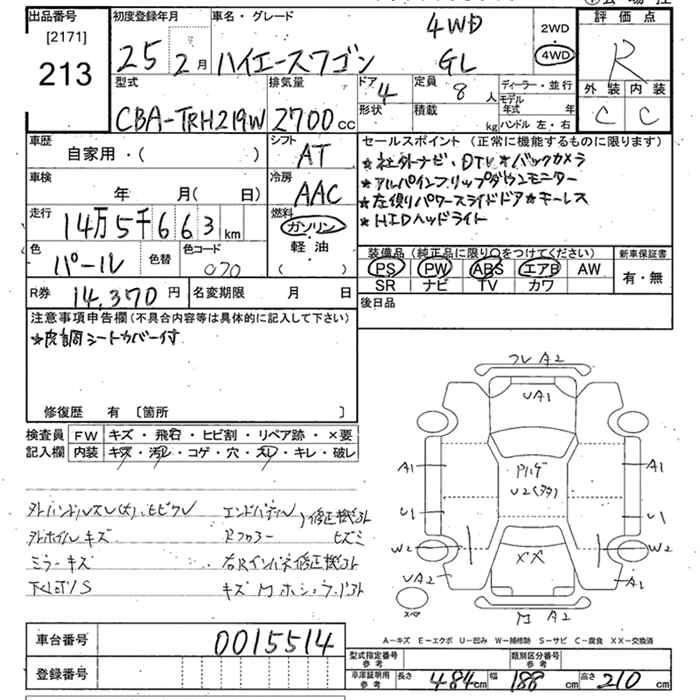 出品番号
[2171]
213
初度登録年月
25年 2月
車名・グレード
ハイエースワゴン
4WD
GL
2WD
4WD
評価点
R
外装 内装
C C
型式
CBA-TRH219W
排気量
2700cc
ドア
4
形状
定員
8人
積載
kg
ディーラー・並行
モデル年式 年
ハンドル 左・右
車歴
自家用・( )
シフト
AT
車検
年 月( 日)
冷房
AAC
走行
14万5千663km
燃料
ガソリン
軽油
( )
色
パール
色替
色コード
070
R券
14,370円
名変期限 月 日
セールスポイント (正常に機能するものに限ります)
★社外ナビ、DTV★バックカメラ
★アルパインフリップダウンモニター
★左側パワースライドドア★キーレス
★HIDヘッドライト
装備品 (純正品に限り○をつけてください)
PS PW ABS エアB AW
SR ナビ TV カワ
新車保証書
有・無
後日品
注意事項申告欄 (不具合内容等は具体的に記入して下さい)
★皮調シートカバー付
修復歴 有 [箇所 ]
検査員記入欄
FW キズ・飛石・ヒビ割・リペア跡・×要
内装 キズ・汚レ・コゲ・穴・スレ・キレ・破レ
外ホイルキズ
ミラーキズ
下回りS
エンドパネル
修正機外
Rフロアー
ヒズミ
右Rインパネ修正機外
フレ A2
UA1
A1
A1
ドハゲ
U2(多々)
U1
U1
W2
W2
××
UA2
A1
スペア
A2
A-キズ E-エクボ U-凹み W-補修跡 S-サビ C-腐食 XX-交換済
車台番号
0015514
登録番号
型式指定番号
参考
類別区分番号
参考
車庫証明用
参考
長さ 484cm 幅 188cm 高さ 210cm